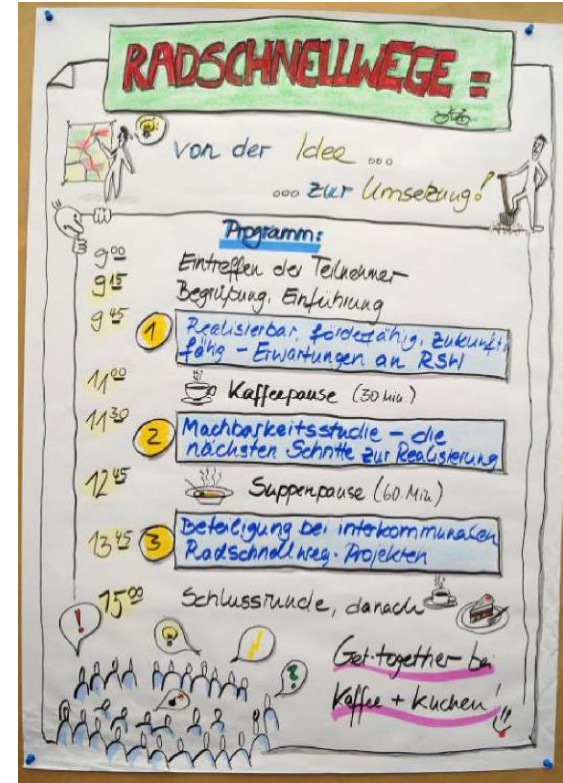 RADSCHNELLWEGE =
von der Idee ...
... zur Umsetzung!
Programm:
9:00 Eintreffen der Teilnehmer
9:15 Begrüßung, Einführung
9:45 1 Realisierbar, förderfähig, zukunfts
fähig - Erwartungen an RSW
11:00 Kaffeepause (30 Min.)
11:30 2 Machbarkeitsstudie - die
nächsten Schritte zur Realisierung
12:45 Suppenpause (60 Min)
13:45 3 Beteiligung bei interkommunalen
Radschnellweg-Projekten
15:00 Schlussrunde, danach
Get-together bei
Kaffee + Kuchen!